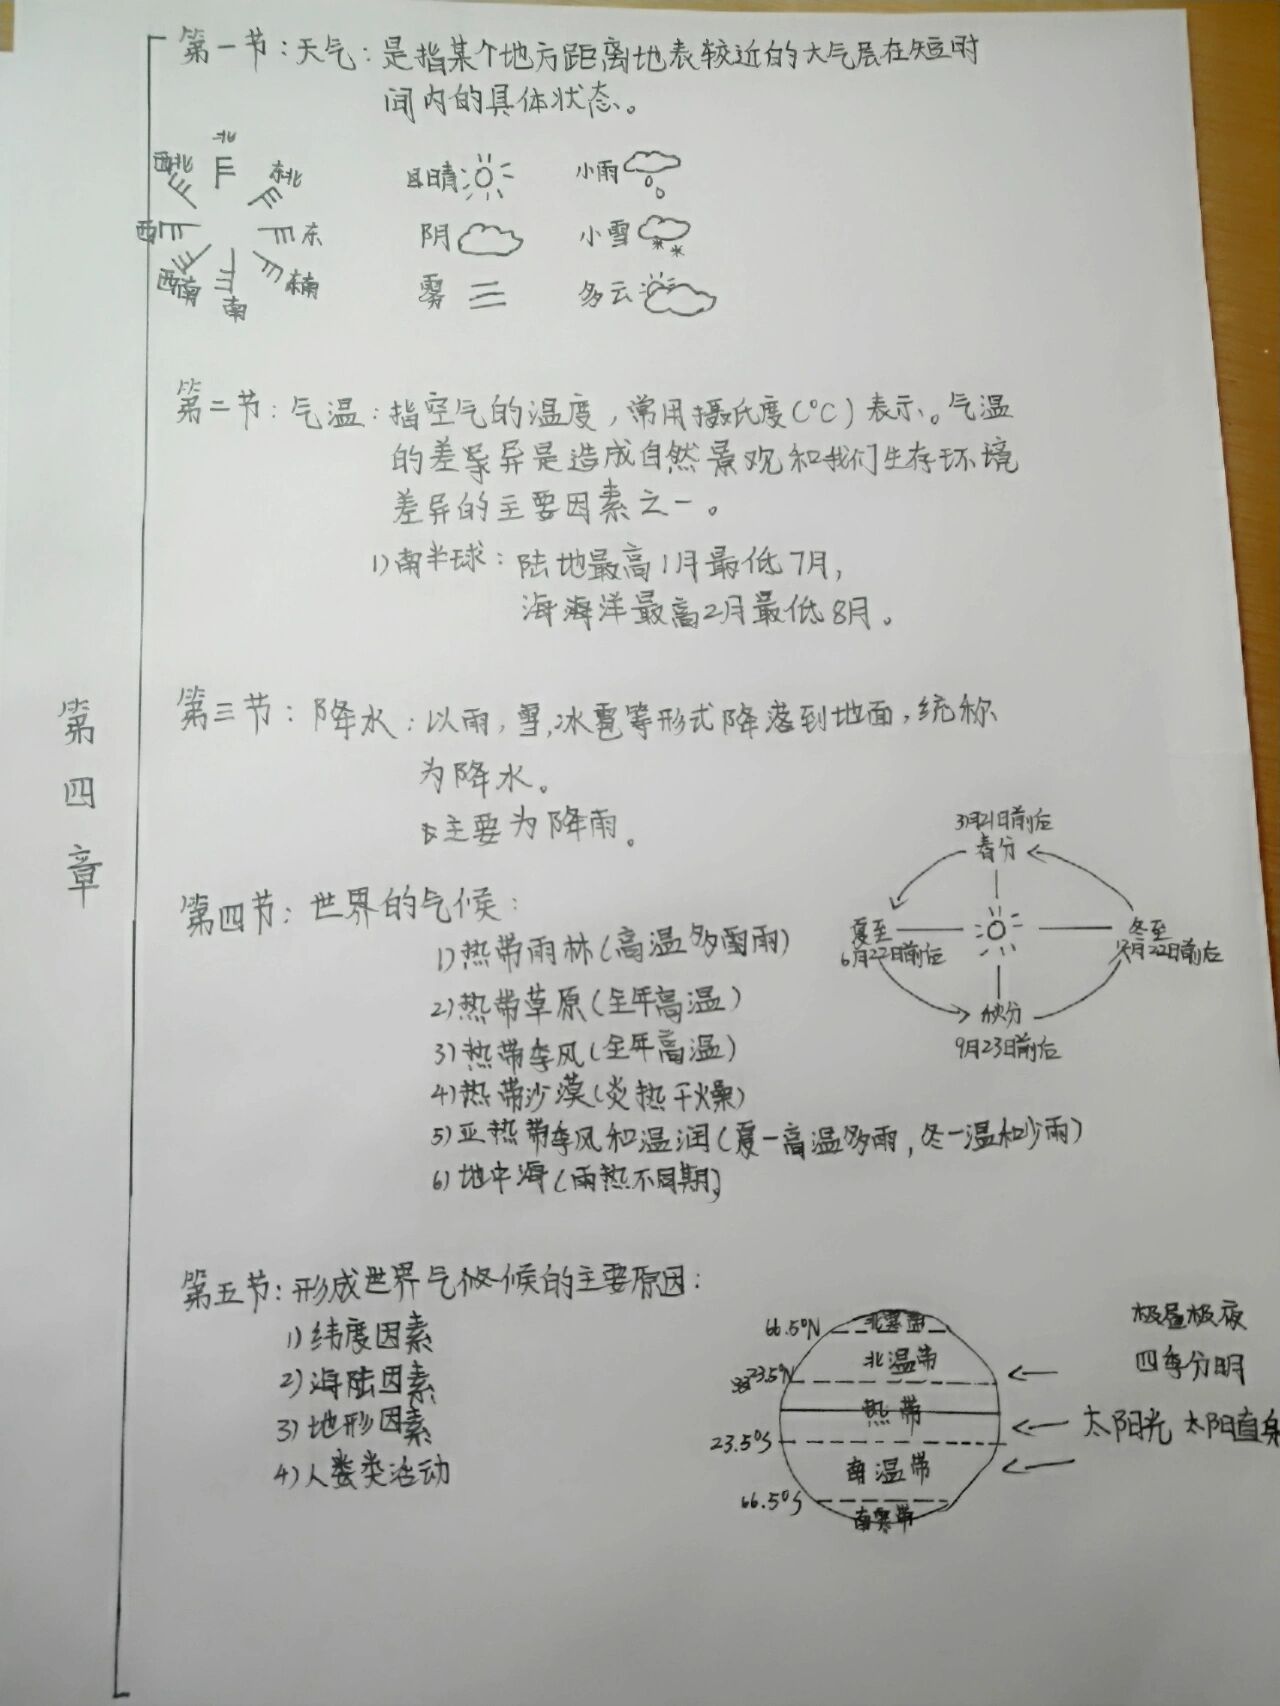 第四章
第一节：天气：是指某个地方距离地表较近的大气层在短时
间内的具体状态。
北
西北
东北
西
东
西南
东南
南
晴
小雨
阴
小雪
雾
多云
第二节：气温：指空气的温度，常用摄氏度(°C)表示。气温
的差异是造成自然景观和我们生存环境
差异的主要因素之一。
1)南半球：陆地最高1月最低7月，
海洋最高2月最低8月。
第三节：降水：以雨，雪，冰雹等形式降落到地面，统称
为降水。
主要为降雨。
3月21日前后
春分
夏至
6月22日前后
冬至
12月22日前后
秋分
9月23日前后
第四节：世界的气候：
1)热带雨林(高温多雨)
2)热带草原(全年高温)
3)热带季风(全年高温)
4)热带沙漠(炎热干燥)
5)亚热带季风和温润(夏一高温多雨，冬一温和少雨)
6)地中海(雨热不同期)
第五节：形成世界气候的主要原因：
1)纬度因素
2)海陆因素
3)地形因素
4)人类活动
66.5°N 北寒带 极昼极夜
北温带 四季分明
23.5°N
热带 太阳光 太阳直射
23.5°S
南温带
66.5°S
南寒带